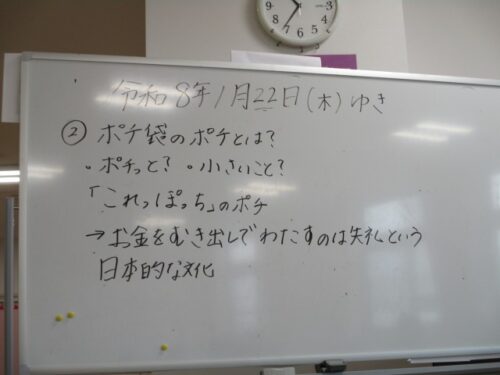 令和8年1月22日(木)ゆき
② ポチ袋のポチとは?
・ポチっと? ・小さいこと?
「これっぽっち」のポチ
→お金をむき出しでわたすのは失礼という
日本的な文化